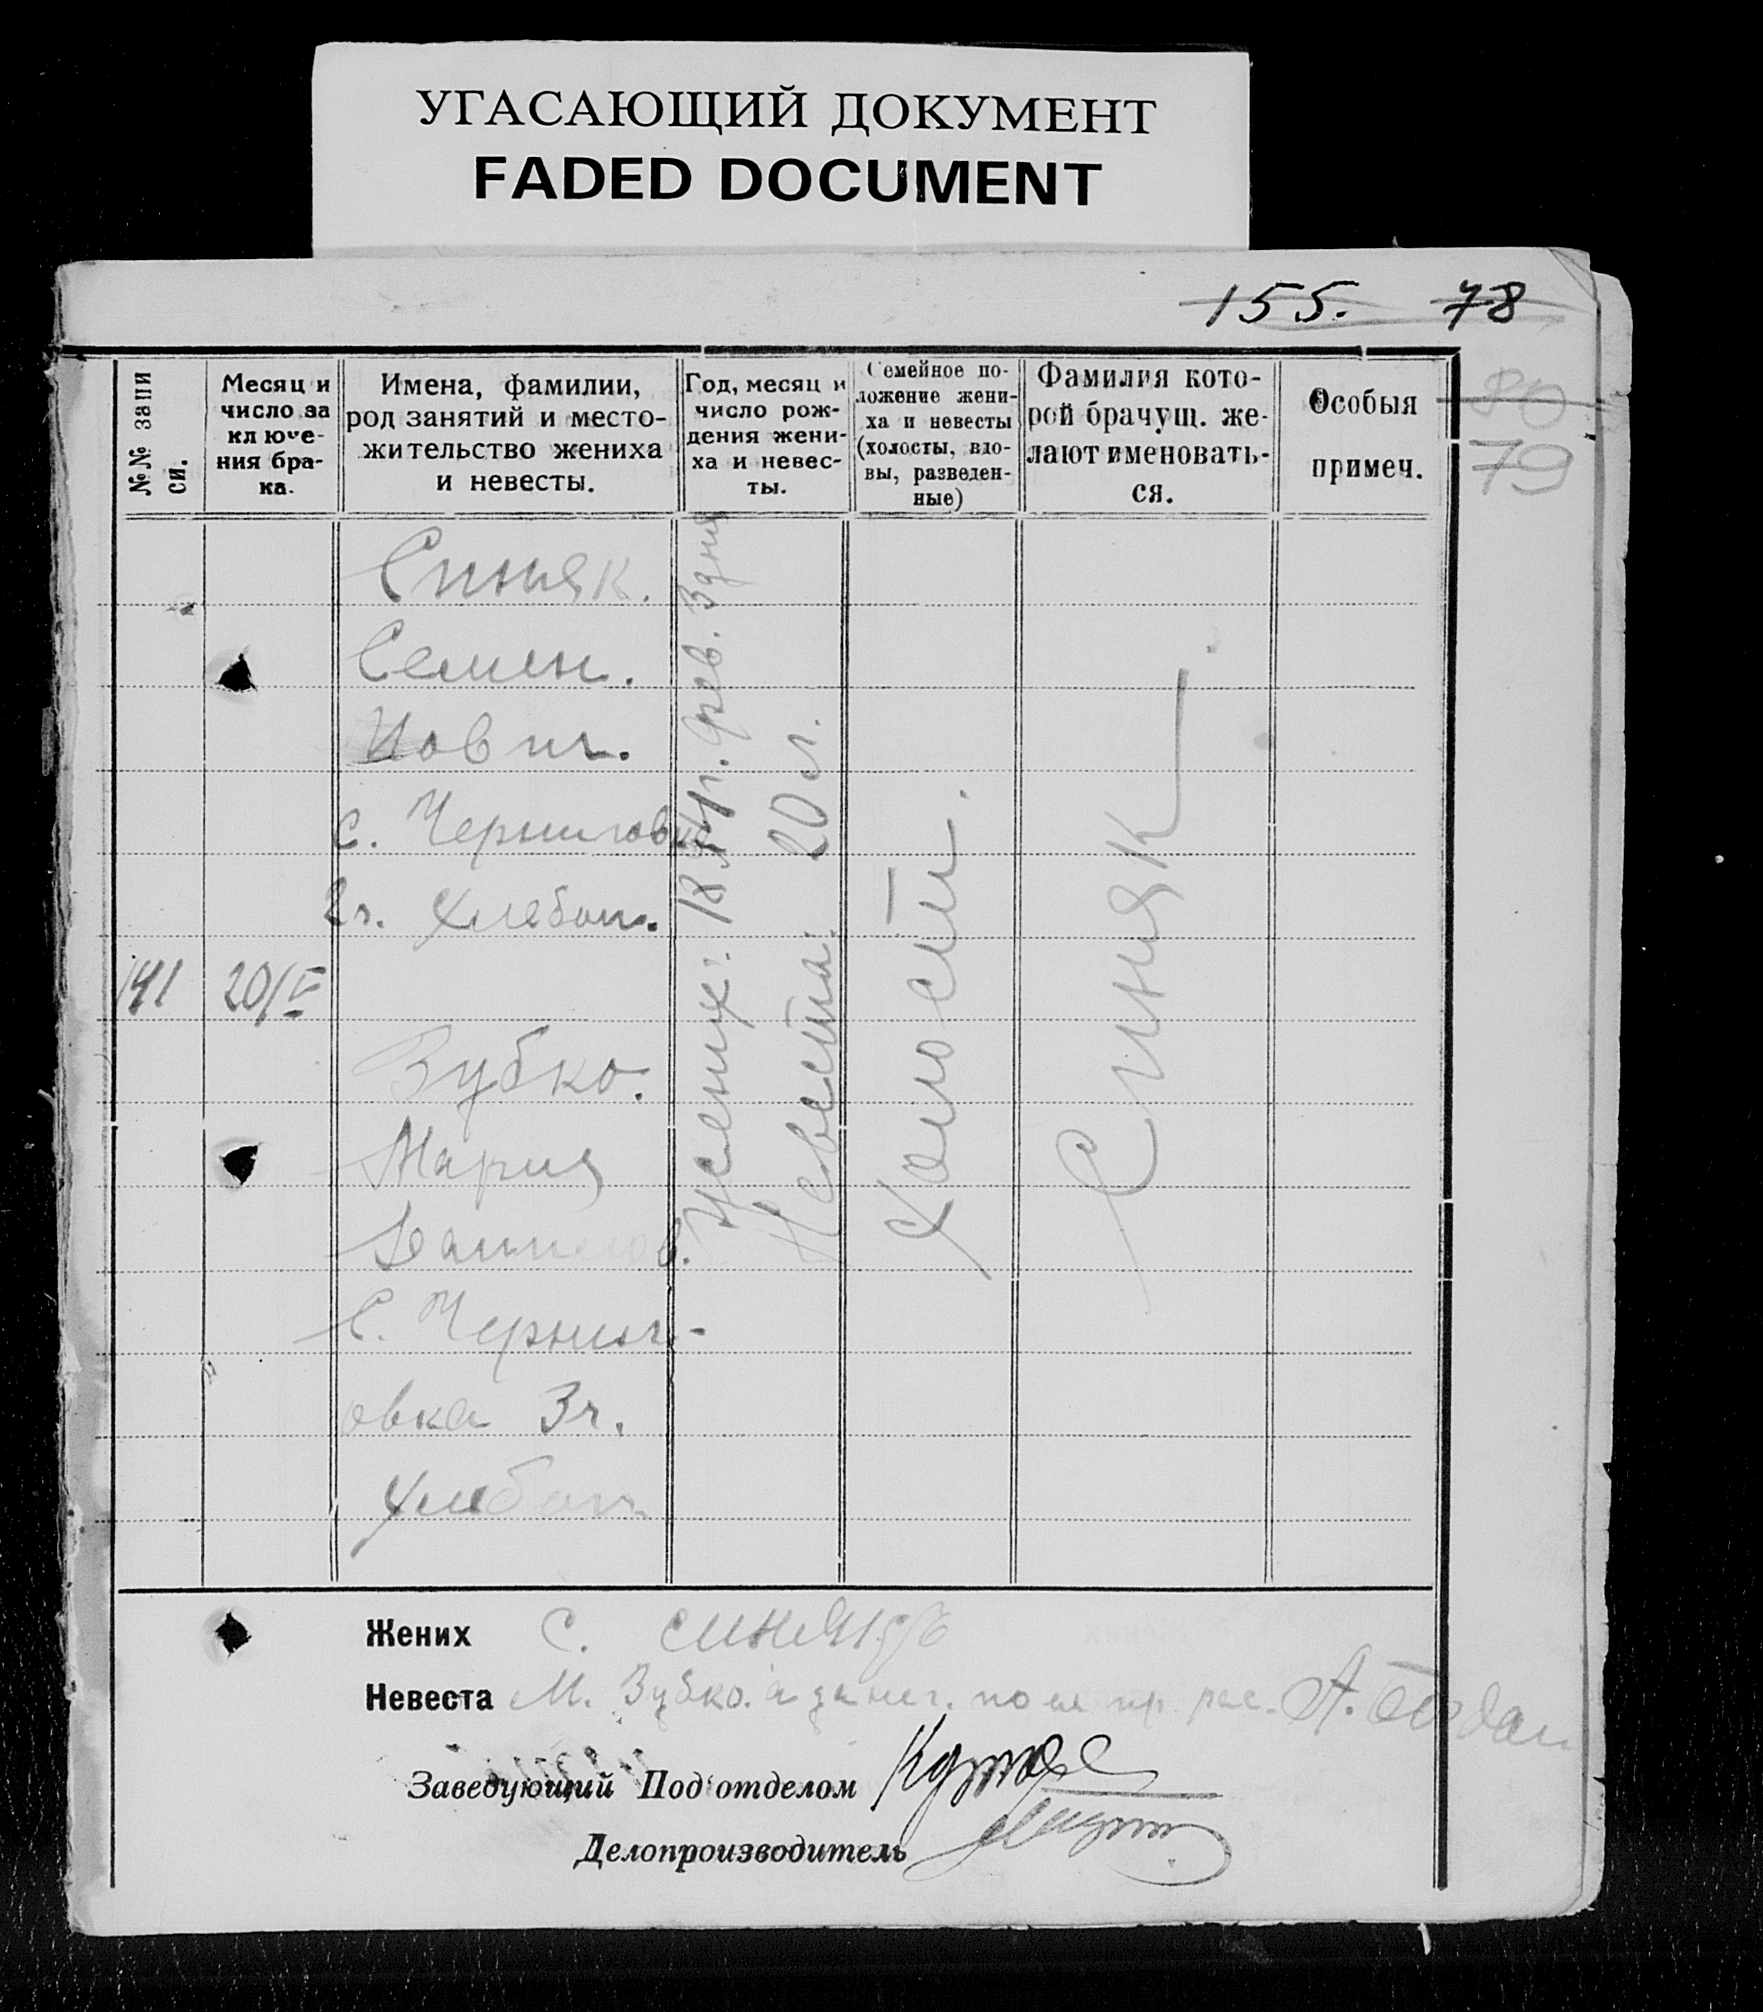 УГАСАЮЩИЙ ДОКУМЕНТ
FADED DOCUMENT
155. 78
80
79
№№ запи
си.
Месяц и
число за
ключе-
ния бра-
ка.
Имена, фамилии,
род занятий и место-
жительство жениха
и невесты.
Год, месяц и
число рож-
дения жени-
ха и невес-
ты.
Семейное по-
ложение жени-
ха и невесты
(холосты, вдо-
вы, разведен-
ные)
Фамилия кото-
рой брачущ. же-
лают именовать-
ся.
Особыя
примеч.
141
20/V
Синяк.
Семен.
Иович.
с. Черниговка
2ч. хлебоп.
Зубко.
Мария
Данилов.
С. Черниг-
овка 3ч.
хлебоп.
Жених: 18 г. фев. 3 дня
Невеста: 20 л.
Холосты.
Синяк
Жених С. Синяк
Невеста М. Зубко. а за нег. по ея пр. рас. А. Богдан
Заведующий Под'отделом
Делопроизводитель